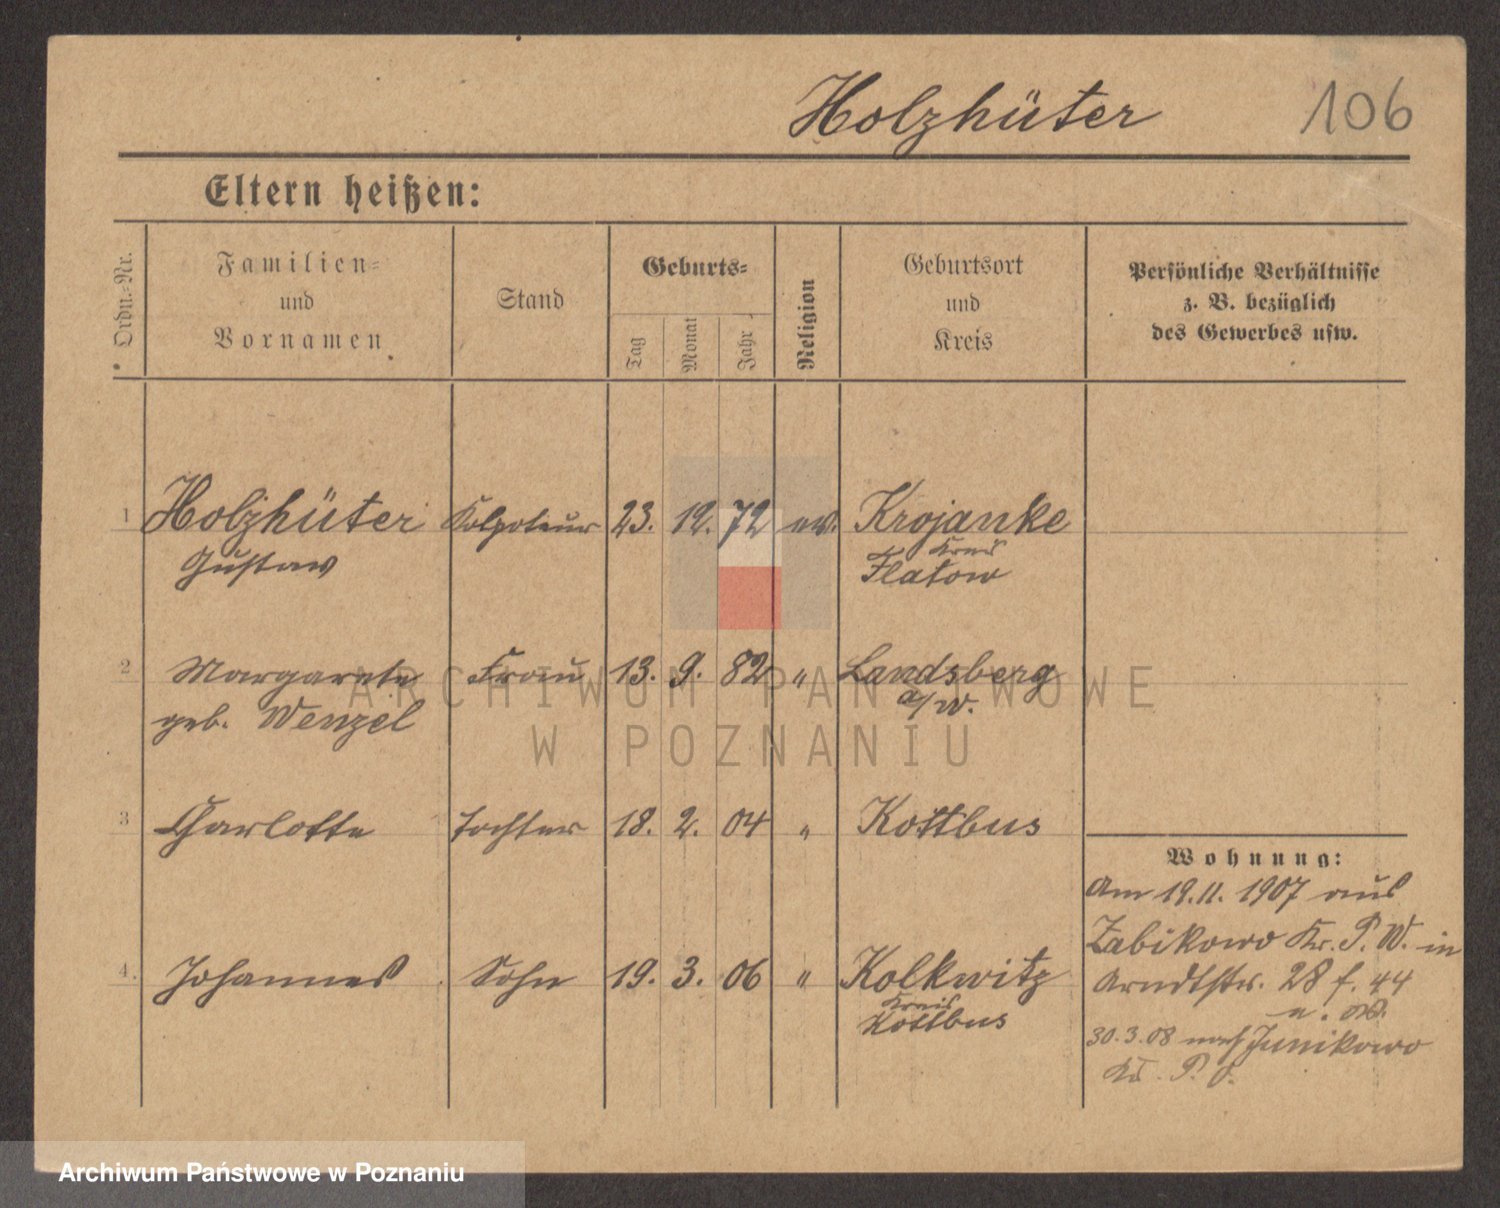 Holzhüter 106
Eltern heißen:
Ordn.-Nr.
Familien-
und
Vornamen
Stand
Geburts-
Tag
Monat
Jahr
Religion
Geburtsort
und
Kreis
Persönliche Verhältnisse
z. B. bezüglich
des Gewerbes usw.
1 Holzhüter Kolporteur 23. 12. 72 ev. Krojanke
Gustav Kreis
Flatow
2 Margarete Frau 13. 9. 82 " Landsberg
geb. Wenzel a/W.
3 Charlotte Tochter 18. 2. 04 " Kottbus
4. Johannes Sohn 19. 3. 06 " Kolkwitz
Kreis
Kottbus
Wohnung:
Am 19.11.1907 aus
Zabikowo Kr. P. W. in
Arndtstr. 28 f. 44
30.3.08 nach Junikowo
Kr. P.
ARCHIWUM PAŃSTWOWE
W POZNANIU
Archiwum Państwowe w Poznaniu